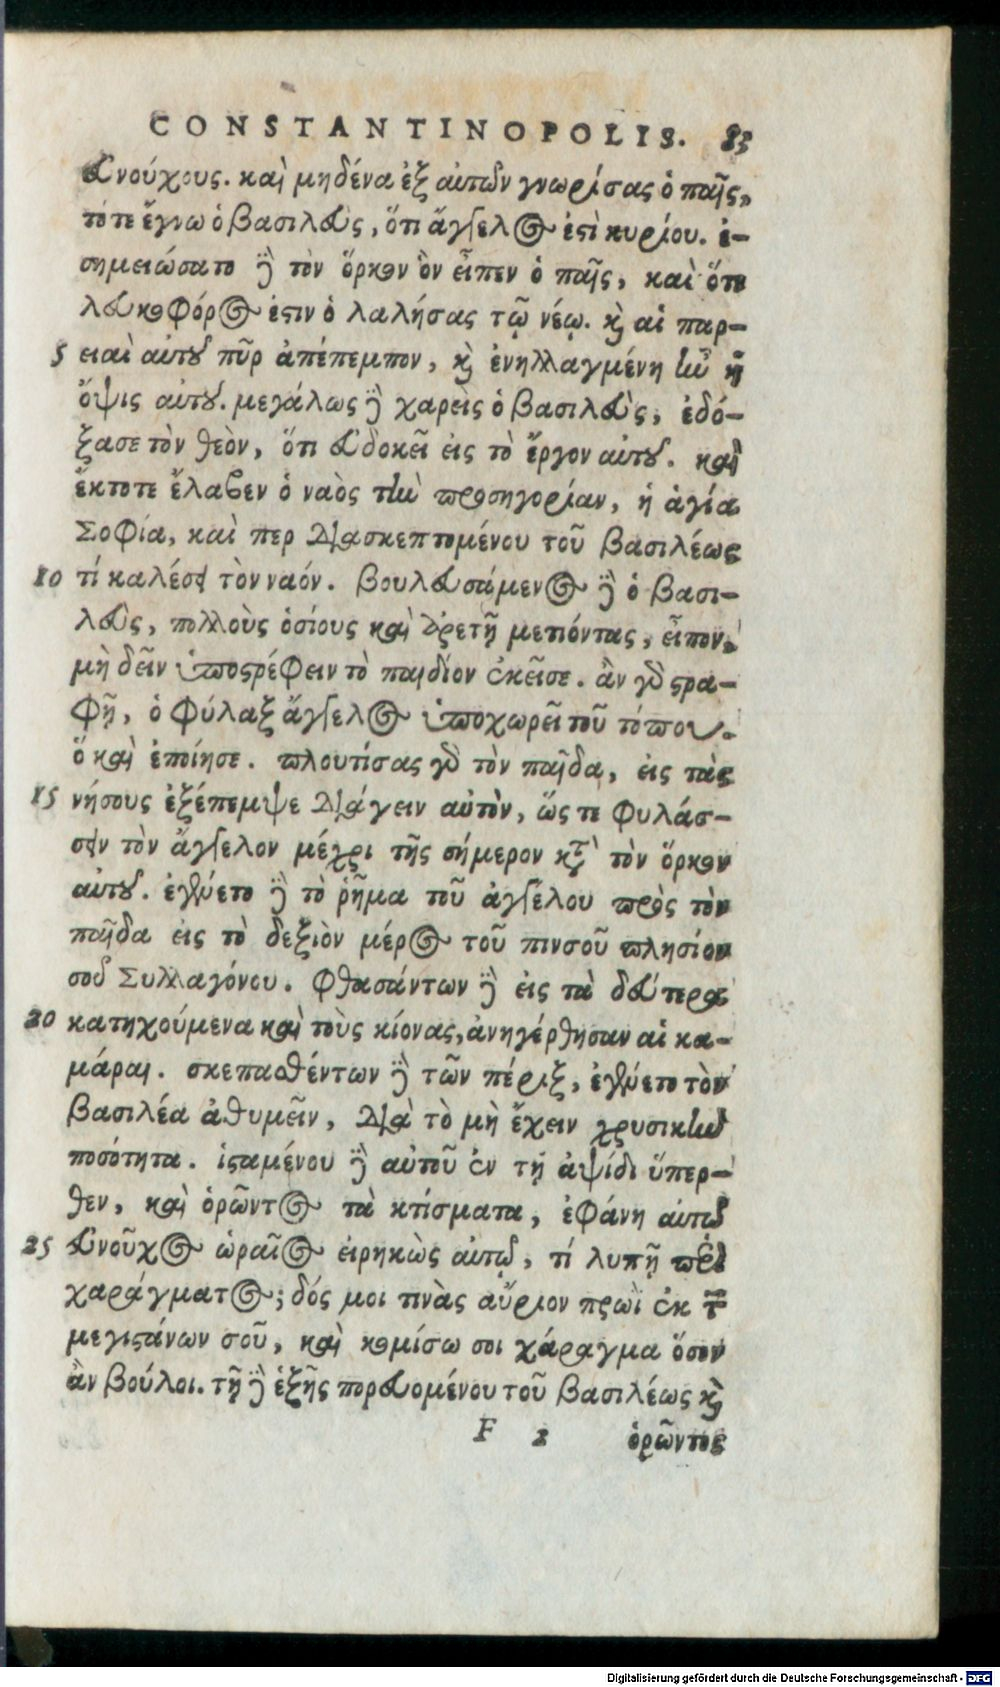 CONSTANTINOPOLIS. 83
εὐνούχους. καὶ μηδένα ἐξ αὐτῶν γνωρίσας ὁ παῖς,
τότε ἔγνω ὁ βασιλεὺς, ὅτι ἄγγελος ἐστὶ κυρίου. ἐ-
σημειώσατο δὲ τὸν ὅρκον ὃν εἶπεν ὁ παῖς, καὶ ὅτι
λευκοφόρος ἐστιν ὁ λαλήσας τῷ νέῳ. καὶ αἱ παρ-
5 ειαὶ αὐτοῦ πῦρ ἀπέπεμπον, καὶ ἐνηλλαγμένη ἦν ἡ
ὄψις αὐτοῦ. μεγάλως δὲ χαρεὶς ὁ βασιλεὺς, ἐδό-
ξασε τὸν θεὸν, ὅτι εὐδοκεῖ εἰς τὸ ἔργον αὐτοῦ. καὶ
ἔκτοτε ἔλαβεν ὁ ναὸς τὴν προσηγορίαν, ἡ ἁγία
Σοφία, καὶ περ διασκεπτομένου τοῦ βασιλέως
10 τί καλέσει τὸν ναόν. βουλευσάμενος δὲ ὁ βασι-
λεὺς, πολλοὺς ὁσίους καὶ ἀρετῇ μετιόντας, εἶπον,
μὴ δεῖν ὑποστρέφειν τὸ παιδίον ἐκεῖσε. ἂν γὰρ στρα-
φῇ, ὁ φύλαξ ἄγγελος ὑποχωρεῖ τοῦ τόπου.
ὅ καὶ ἐποίησε. πλουτίσας γὰρ τὸν παῖδα, εἰς τὰς
15 νήσους ἐξέπεμψε διάγειν αὐτὸν, ὥς τε φυλάσ-
σειν τὸν ἄγγελον μέχρι τῆς σήμερον κατὰ τὸν ὅρκον
αὐτοῦ. ἐγένετο δὲ τὸ ῥῆμα τοῦ ἀγγέλου πρὸς τὸν
παῖδα εἰς τὸ δεξιὸν μέρος τοῦ πινσοῦ πλησίον
τοῦ Συλλαγόνου. φθασάντων δὲ εἰς τὰ δεύτερα
20 κατηχούμενα καὶ τοὺς κίονας, ἀνηγέρθησαν αἱ κα-
μάραι. σκεπασθέντων δὲ τῶν πέριξ, ἐγένετο τὸν
βασιλέα ἀθυμεῖν, διὰ τὸ μὴ ἔχειν χρυσικὴν
ποσότητα. ἱσταμένου δὲ αὐτοῦ ἐν τῇ ἀψίδι ὕπερ-
θεν, καὶ ὁρῶντος τὰ κτίσματα, ἐφάνη αὐτῷ
25 εὐνοῦχος ὡραῖος εἰρηκὼς αὐτῷ, τί λυπῇ περὶ
χαράγματος; δός μοι τινὰς αὔριον πρωὶ ἐκ τῶν
μεγιστάνων σοῦ, καὶ κομίσω σοι χάραγμα ὅσον
ἂν βούλοι. τῇ δὲ ἑξῆς πορευομένου τοῦ βασιλέως καὶ
F 2 ὁρῶντος
Digitalisierung gefördert durch die Deutsche Forschungsgemeinschaft - DFG